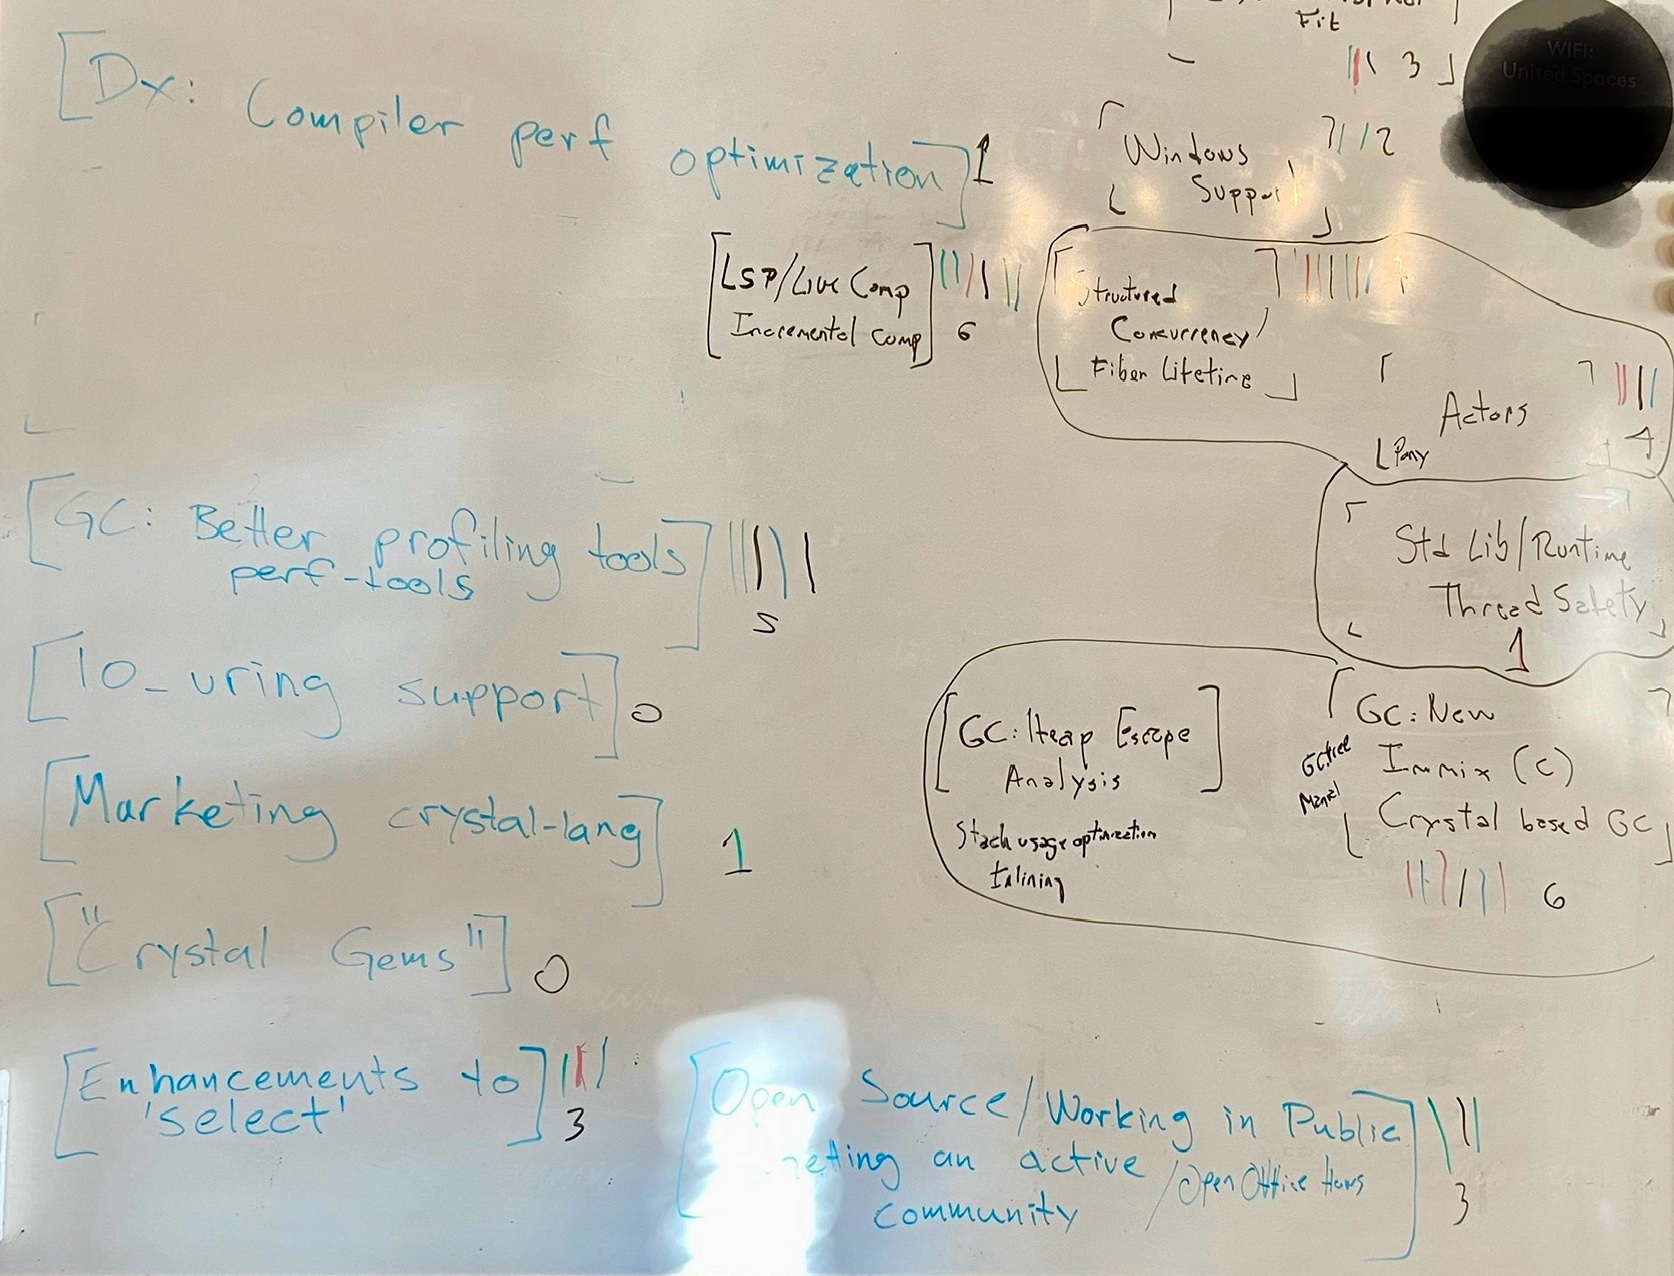 [Dx: Compiler perf optimization] 1
Fit
3
WIFI:
United Spaces
Windows
Support
2
[LSP/Live Comp
Incremental Comp] 6
Structured
Concurrency/
Fiber Lifetime
Actors
Pony
4
[GC: Better profiling tools]
perf-tools
5
Std Lib/Runtime
Thread Safety
1
[IO_uring support] 0
[GC: Heap Escape
Analysis]
Stack usage optimization
Inlining
GC: New
Immix (C)
Crystal based GC
GC.free
6
[Marketing crystal-lang] 1
["Crystal Gems"] 0
[Enhancements to
'select']
3
[Open Source/Working in Public
an active
community
/Open Office Hours]
3